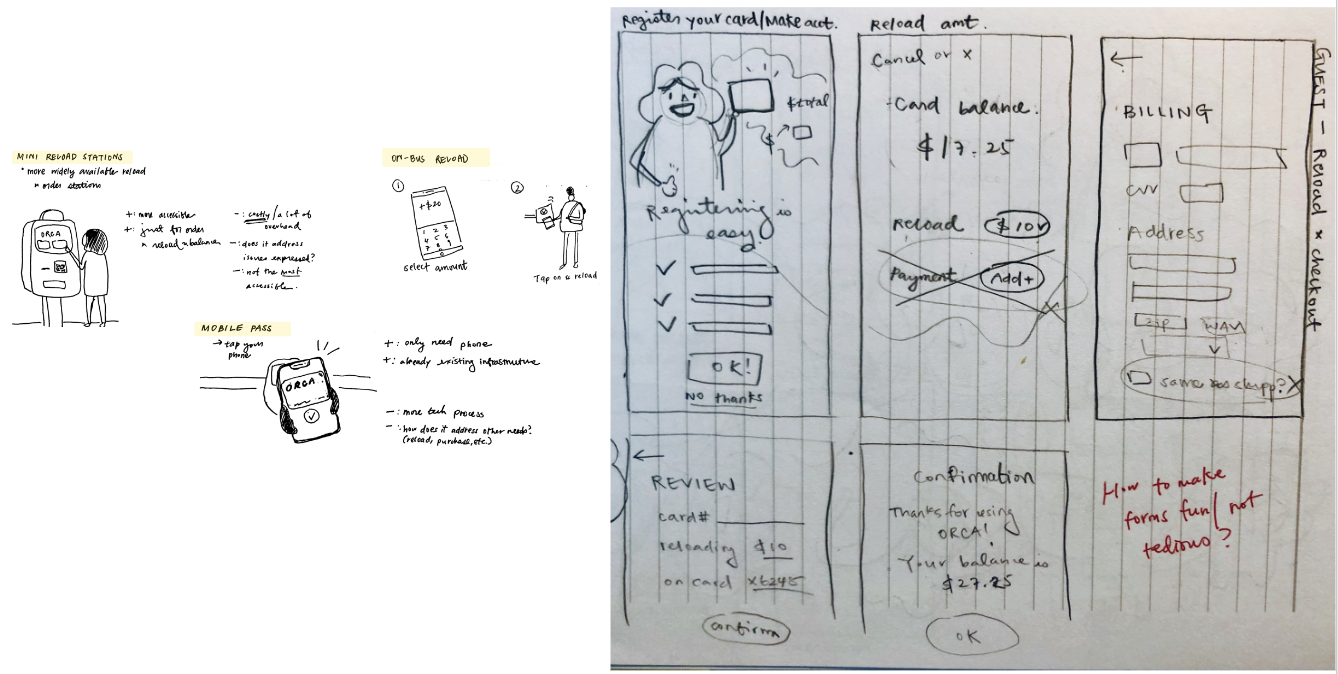 MINI RELOAD STATIONS
• more widely available reload
× order stations
ORCA
+: more accessible
+: just for order
× reload × balances
-: costly / a lot of
overhead
-: does it address
issues expressed?
-: not the most
accessible.
ON-BUS RELOAD
1
+$20
1 2 3
4 5 6
7 8 9
0
select amount
2
Tap on a reload
MOBILE PASS
→ tap your
phone
ORCA
+: only need phone
+: already existing infrastructure
-: more tech process
-: how does it address other needs?
(reload, purchase, etc.)
Register your card/Make acct.
$total
$
Registering is
easy.
OK!
No thanks
Reload amt.
Cancel or x
Card balance.
$17.25
Reload $10 v
Payment Add+
←
BILLING
CVV
Address
zip WA
same as shipp? X
GUEST - Reload × checkout
←
REVIEW
card#
reloading $10
on card
confirm
Confirmation
Thanks for using
ORCA!
Your balance is
$27.25
OK
How to make
forms fun/ not
tedious?